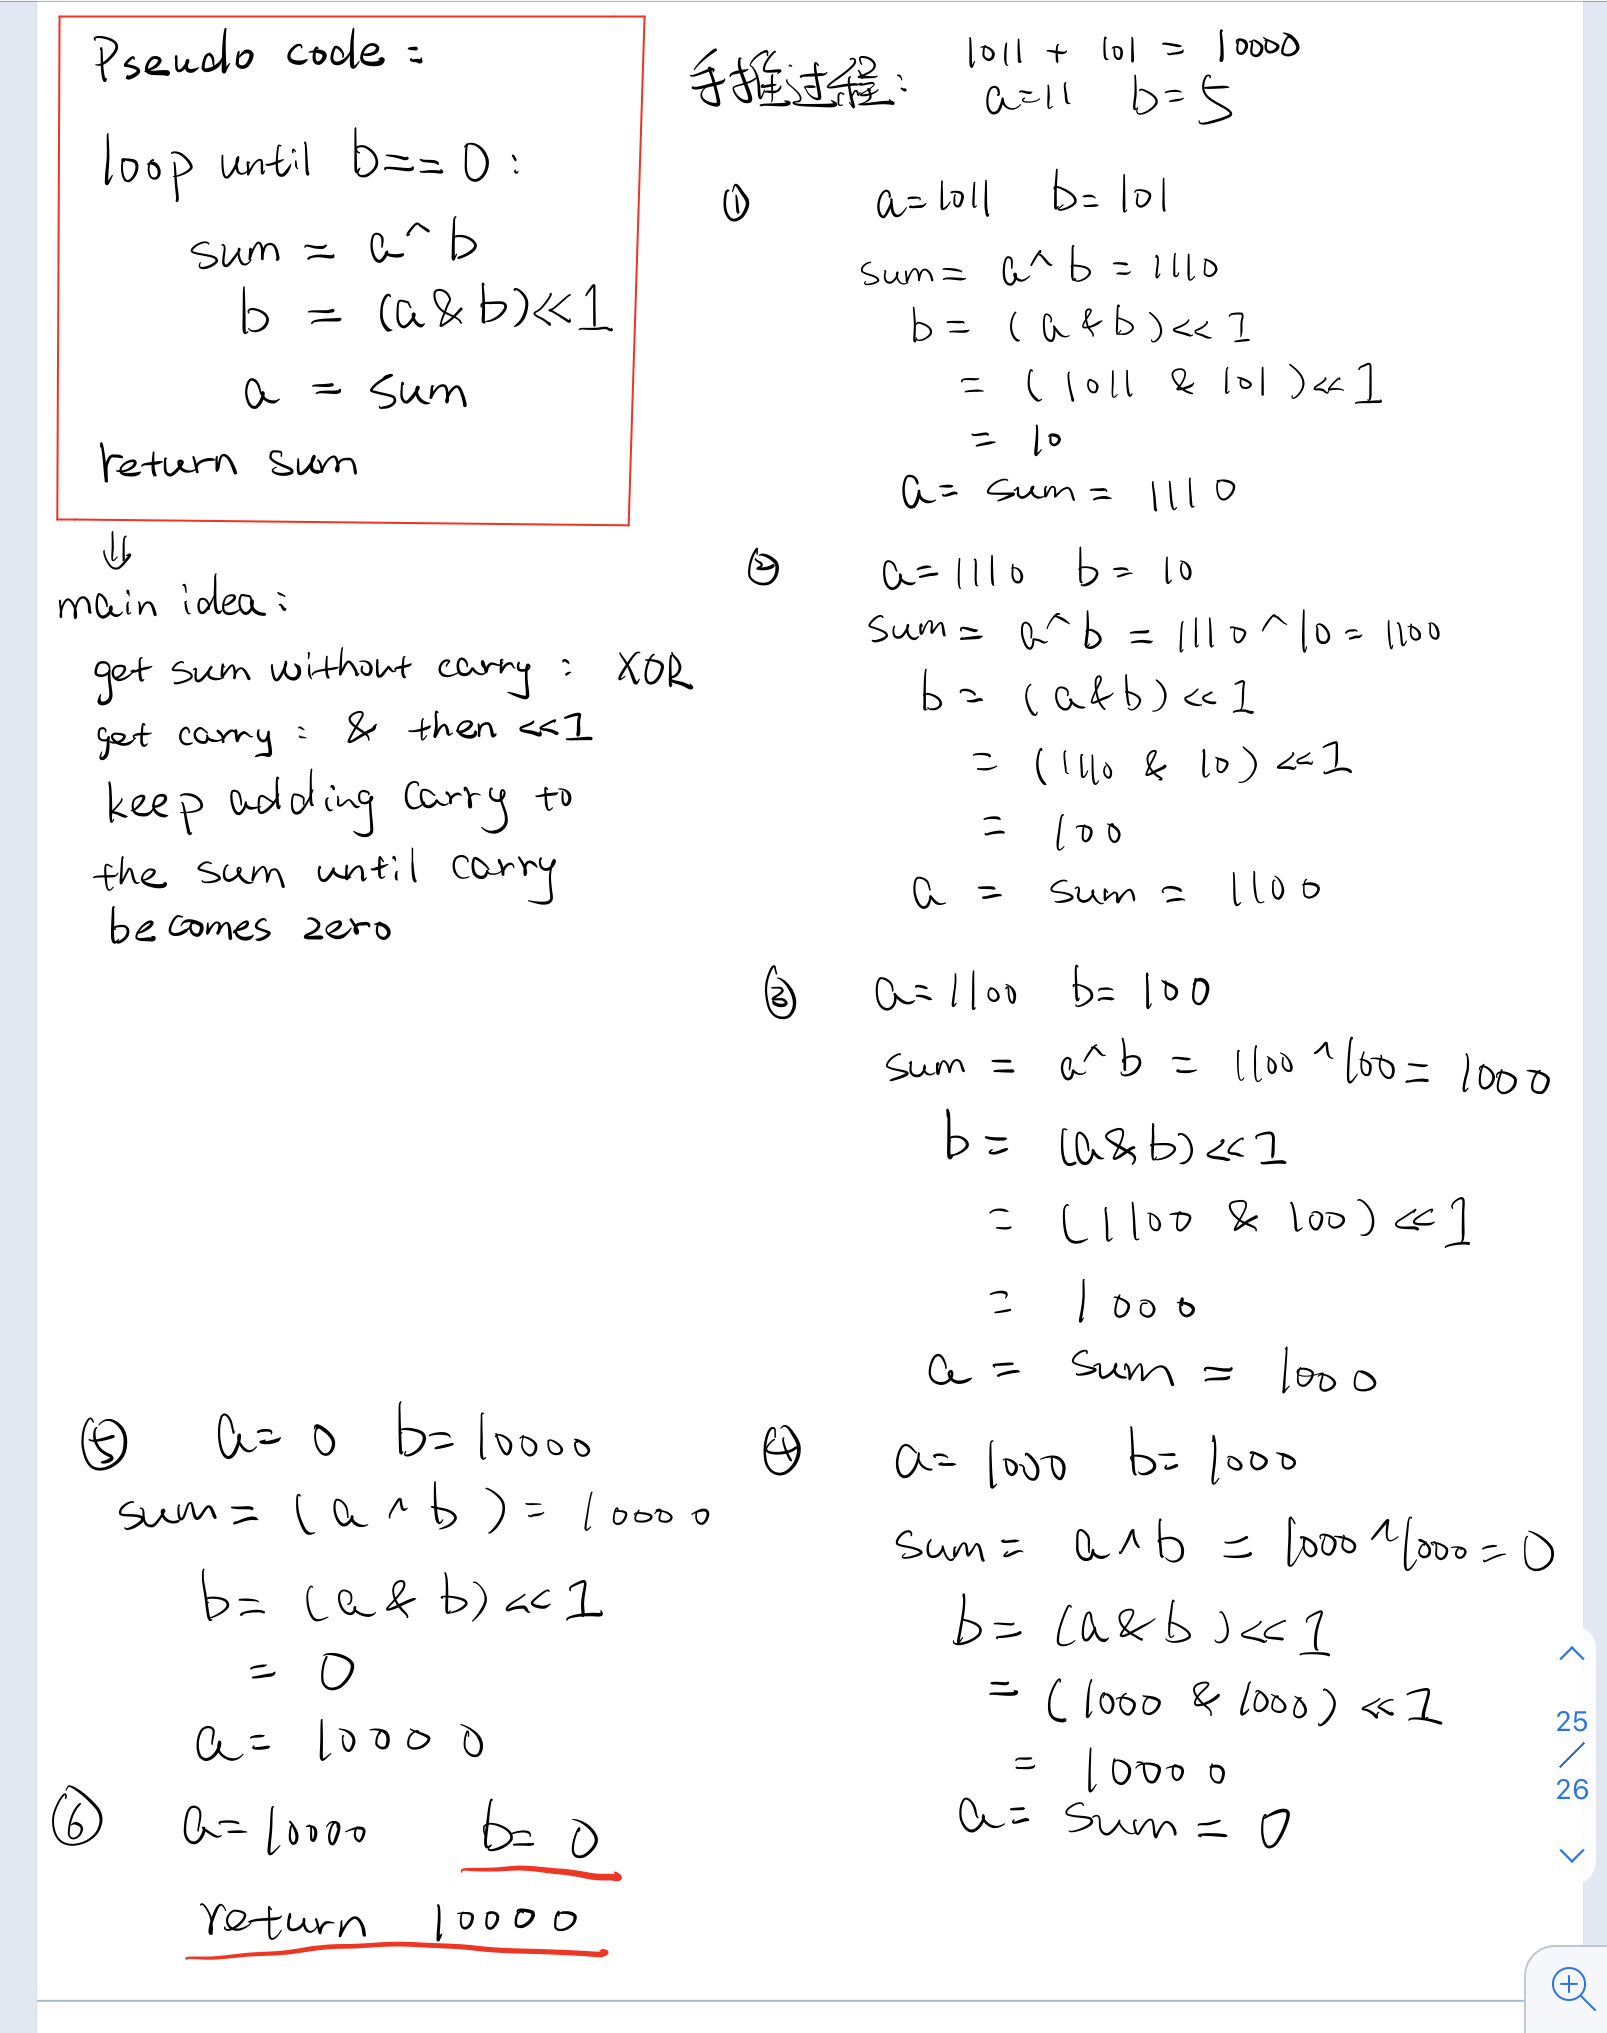 Pseudo code:
loop until b==0:
sum = a^b
b = (a&b)<<1
a = sum
return sum
⇓
main idea:
get sum without carry: XOR
get carry: & then <<1
keep adding carry to
the sum until carry
becomes zero
手推过程:
1011 + 101 = 10000
a=11 b=5
① a=1011 b=101
sum= a^b = 1110
b= (a&b)<<1
= (1011 & 101)<<1
= 10
a= sum= 1110
② a=1110 b= 10
sum= a^b = 1110^10= 1100
b= (a&b)<<1
= (1110 & 10)<<1
= 100
a = sum = 1100
③ a=1100 b= 100
sum = a^b = 1100^100= 1000
b= (a&b)<<1
= (1100 & 100)<<1
= 1000
a = sum = 1000
④ a= 1000 b= 1000
sum= a^b = 1000^1000=0
b= (a&b)<<1
= (1000 & 1000)<<1
= 10000
a= sum = 0
⑤ a= 0 b= 10000
sum= (a^b)= 10000
b= (a&b)<<1
= 0
a= 10000
⑥ a=10000 b= 0
return 10000
25
/
26